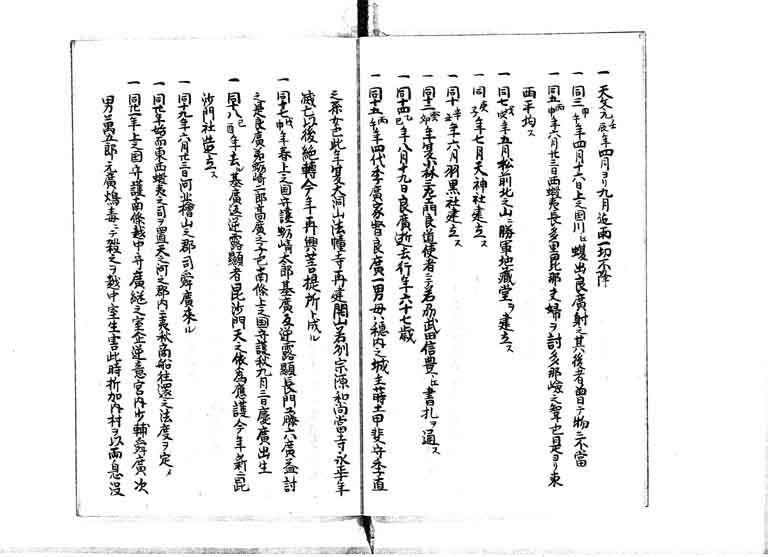 一 天文元壬辰年四月ヨリ九月迄雨一切不降
一 同三甲午年四月十六日上之國川ニ蝬出良廣射之其後者曽テ物ニ不當
一 同五丙申年六月廿三日西蝦夷長多里毘那夫婦ヲ討多那嶮之聟也是ヨリ東
西平均ス
一 同七戊戌年五月松前北之山ニ勝軍地蔵堂ヲ建立ス
一 同庚子年七月天神社建立ス
一 同十辛丑年六月羽黒社建立ス
一 同十二癸卯年夏小林三左エ門良道使者ニテ若州武田信豊江書札ヲ通ス
一 同十四乙巳年八月十九日良廣逝去行年六十七歳
一 同十五丙午年四代季廣家督良廣一男母ハ穏内之城主蒔土甲斐守季直
之系女也此年夏大洞山法幢寺再建開山若州宗源和尚當寺永正年
滅亡以後絶轉今年再興菩提所ト成ル
一 同十七戊申年春上之国守護蛎崎太郎基廣反逆露顕長門工藤六廣益討
之是良廣弟蛎崎二郎高廣之子也南條上之国守護秋九月三日慶廣出生
一 同十八己酉年去ル基廣返逆露顕者毘沙門天之依為應護今年新ニ毘
沙門社造立ス
一 同十九年六月廿三日河北檜山之郡司舜廣來ル
一 同廿年始而東西蝦夷之司ヲ置天之河之郡内ニ夷狄商船往還之法度ヲ定メ
一 同廿一年上之国守護南條越中守廣継之室企逆意宮内少輔舜廣次
男萬五郎元廣鴆毒ニテ殺之ヲ越中室生害此時折加内村ヲ以両息没